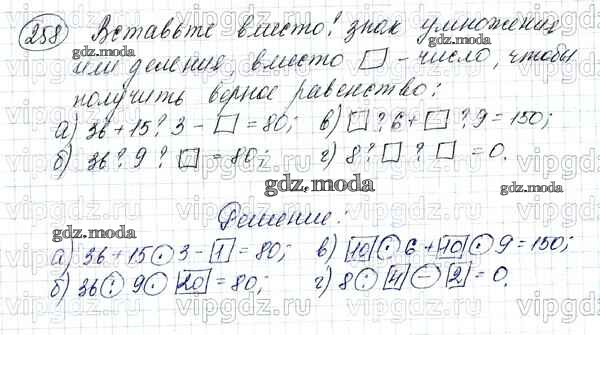 258) Вставьте вместо ? знак умножения
или деления, вместо □ - число, чтобы
получить верное равенство:
а) 36 + 15 ? 3 - □ = 80; в) □ ? 6 + □ ? 9 = 150;
б) 36 ? 9 ? □ = 80; г) 8 ? □ ? □ = 0.
gdz.moda
Решение:
а) 36 + 15 · 3 - 1 = 80; в) 10 · 6 + 10 · 9 = 150;
б) 36 : 9 · 20 = 80; г) 8 : 4 - 2 = 0.